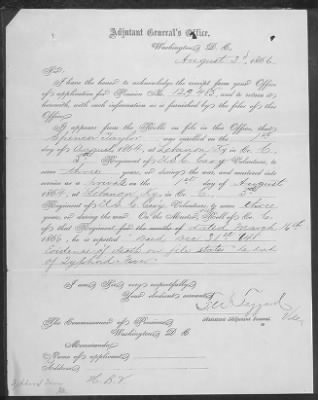 Adjutant General's Office,
Washington, D. C.
August 2d, 1866.
Sir:
I have the honor to acknowledge the receipt from your Office
of application for Pension No. 129,415, and to return it
herewith, with such information as is furnished by the files of this
Office.
It appears from the Rolls on file in this Office, that
Spencer Taylor was enrolled on the 1st
day of August, 1864, at Lebanon Ky in Co. C,
5th Regiment of U.S.C. Cavy Volunteers, to
serve three years, or during the war, and mustered into
service as a Private on the 1st day of August
1864, at Lebanon, Ky, in Co. C, 5th
Regiment of U.S.C. Cavy Volunteers, to serve three
years, or during the war. On the Muster Roll of Co. C
of that Regiment, for the months of dated March 16th
1866, he is reported "Died Dec 31st
Evidence of death on file states
of Typhoid Fever"
I am, Sir, very respectfully,
Your obedient servant,
Assistant Adjutant General
The Commissioner of Pensions,
Washington, D. C.
Memoranda:
Name of applicant,
Address,
Typhoid Fever